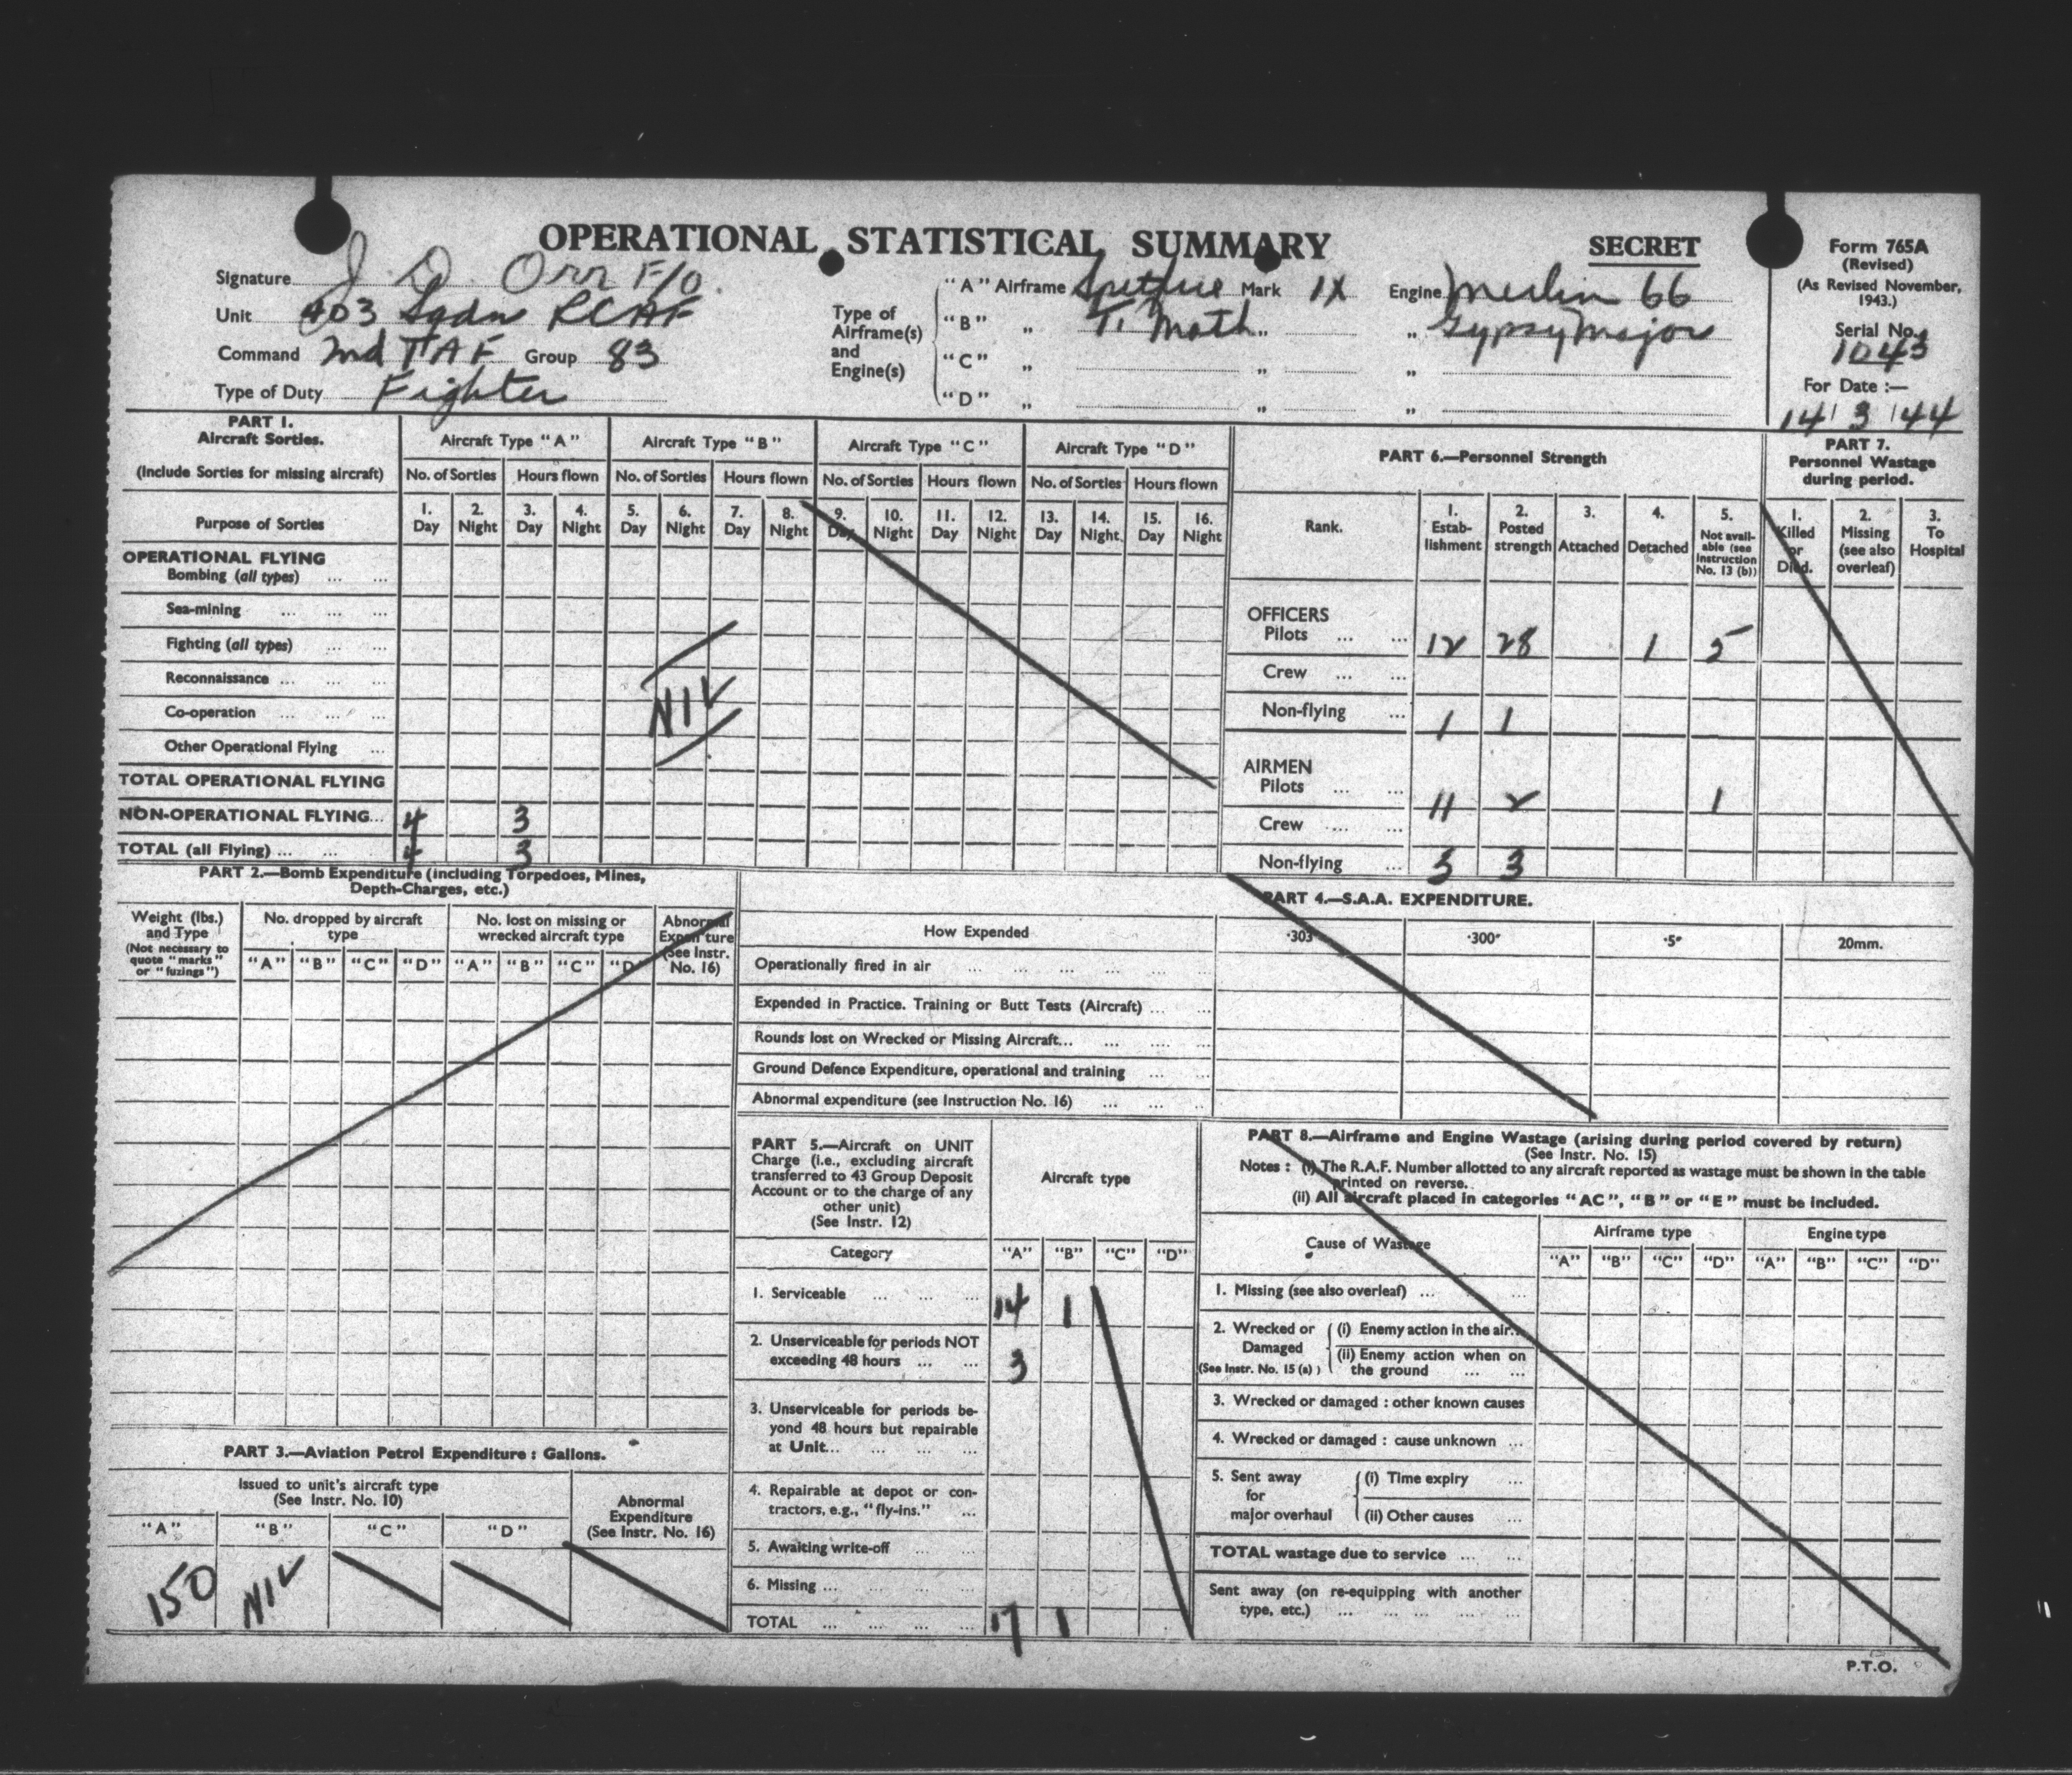 OPERATIONAL STATISTICAL SUMMARY
SECRET
Form 765A
(Revised)
(As Revised November, 1943.)
Serial No.
1043
For Date :—
14 3 44
Signature J. D. Orr F/O.
Unit 403 Sqdn RCAF
Command 2nd TAF Group 83
Type of Duty Fighter
Type of Airframe(s) and Engine(s)
"A" Airframe Spitfire Mark IX Engine Merlin 66
"B" „ T. Moth „ „ Gypsy Major
"C" „ „ „
"D" „ „ „
PART 1.
Aircraft Sorties.
(Include Sorties for missing aircraft)
Purpose of Sorties
Aircraft Type "A" Aircraft Type "B" Aircraft Type "C" Aircraft Type "D"
No. of Sorties Hours flown No. of Sorties Hours flown No. of Sorties Hours flown No. of Sorties Hours flown
1. Day 2. Night 3. Day 4. Night 5. Day 6. Night 7. Day 8. Night 9. Day 10. Night 11. Day 12. Night 13. Day 14. Night 15. Day 16. Night
OPERATIONAL FLYING
Bombing (all types) ... ...
Sea-mining ... ... ...
Fighting (all types) ... ...
Reconnaissance ... ... ...
Co-operation ... ... ...
Other Operational Flying ...
NIL
TOTAL OPERATIONAL FLYING
NON-OPERATIONAL FLYING... 4 3
TOTAL (all Flying) ... ... ... 4 3
PART 6.—Personnel Strength
Rank.
1. Estab-lishment
2. Posted strength
3. Attached
4. Detached
5. Not avail-able (see Instruction No. 13 (b))
OFFICERS
Pilots ... ... 12 28 1 5
Crew ... ...
Non-flying ... 1 1
AIRMEN
Pilots ... ... 11 2 1
Crew ... ...
Non-flying ... 3 3
PART 7.
Personnel Wastage during period.
1. Killed or Died.
2. Missing (see also overleaf)
3. To Hospital
PART 2.—Bomb Expenditure (including Torpedoes, Mines,
Depth-Charges, etc.)
Weight (lbs.) and Type
(Not necessary to quote "marks" or "fuzings")
No. dropped by aircraft type
No. lost on missing or wrecked aircraft type
Abnormal Expen'ture (See Instr. No. 16)
"A" "B" "C" "D" "A" "B" "C" "D"
PART 4.—S.A.A. EXPENDITURE.
How Expended
·303 ·300" ·5" 20mm.
Operationally fired in air ... ... ... ... ... ...
Expended in Practice. Training or Butt Tests (Aircraft) ... ...
Rounds lost on Wrecked or Missing Aircraft... ... .... ...
Ground Defence Expenditure, operational and training ... ...
Abnormal expenditure (see Instruction No. 16) ... ... ..
PART 3.—Aviation Petrol Expenditure : Gallons.
Issued to unit's aircraft type
(See Instr. No. 10)
Abnormal Expenditure
(See Instr. No. 16)
"A" "B" "C" "D"
150 NIL
PART 5.—Aircraft on UNIT
Charge (i.e., excluding aircraft
transferred to 43 Group Deposit
Account or to the charge of any
other unit)
(See Instr. 12)
Aircraft type
Category
"A" "B" "C" "D"
1. Serviceable ... ... ... 14 1
2. Unserviceable for periods NOT
exceeding 48 hours ... ... 3
3. Unserviceable for periods be-
yond 48 hours but repairable
at Unit... ... ... ...
4. Repairable at depot or con-
tractors, e.g., "fly-ins." ...
5. Awaiting write-off ... ...
6. Missing ... ... ... ...
TOTAL ... ... ... ... 17 1
PART 8.—Airframe and Engine Wastage (arising during period covered by return)
(See Instr. No. 15)
Notes : (i) The R.A.F. Number allotted to any aircraft reported as wastage must be shown in the table
printed on reverse.
(ii) All aircraft placed in categories "AC", "B" or "E" must be included.
Cause of Wastage
Airframe type Engine type
"A" "B" "C" "D" "A" "B" "C" "D"
1. Missing (see also overleaf) ... ... ...
2. Wrecked or Damaged
(See Instr. No. 15 (a) )
(i) Enemy action in the air...
(ii) Enemy action when on
the ground ... ...
3. Wrecked or damaged : other known causes
4. Wrecked or damaged : cause unknown ...
5. Sent away for major overhaul
(i) Time expiry ...
(ii) Other causes ...
TOTAL wastage due to service ... ...
Sent away (on re-equipping with another
type, etc.) ... ... ... ... ...
P.T.O.